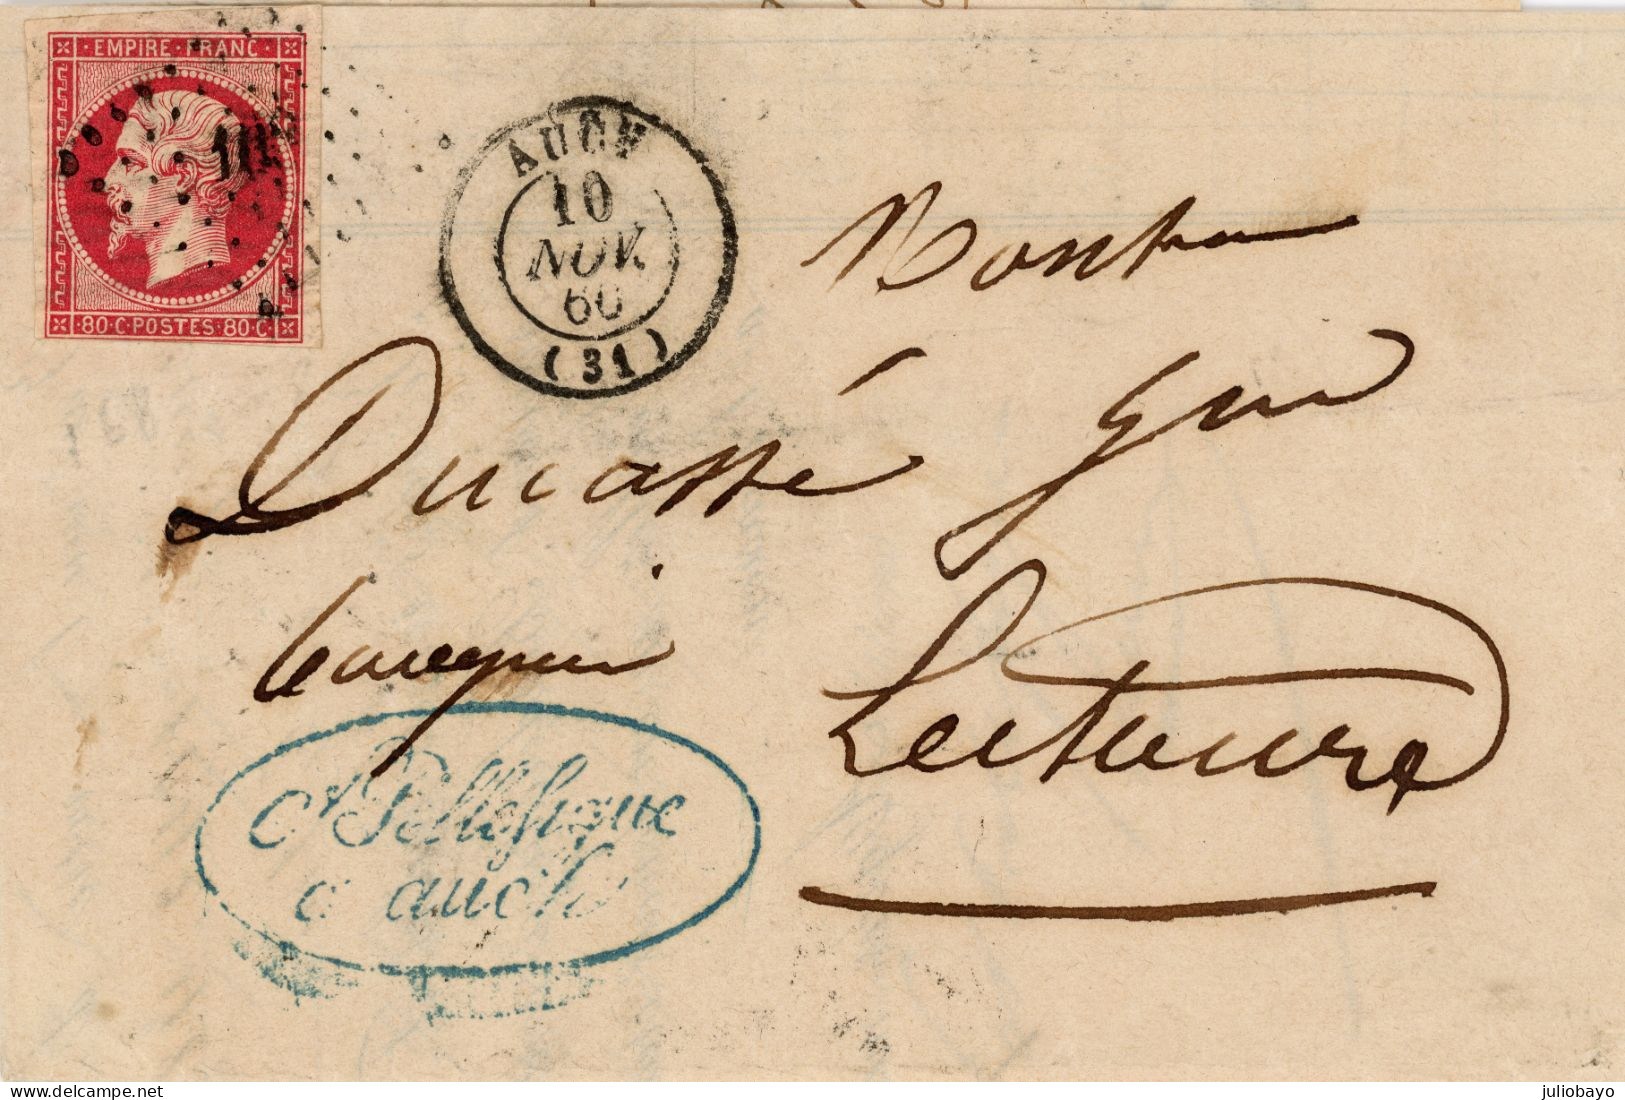 EMPIRE · FRANC ·
80 · C · POSTES · 80 · C
AUCH
10
NOV.
60
(31)
Ducasse
Lectoure
Pellefigue
a auch
Delcampe.net
juliobayo